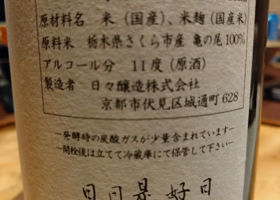 原材料名　米（国産）、米麹（国産米）
原料米　栃木県さくら市産 亀の尾 100%
アルコール分　11度（原酒）
製造者　日々醸造株式会社
京都市伏見区城通町 628
―発酵時の炭酸ガスが少量含まれています―
―開栓後は立てて冷蔵庫にて保管して下さい―
日日是好日